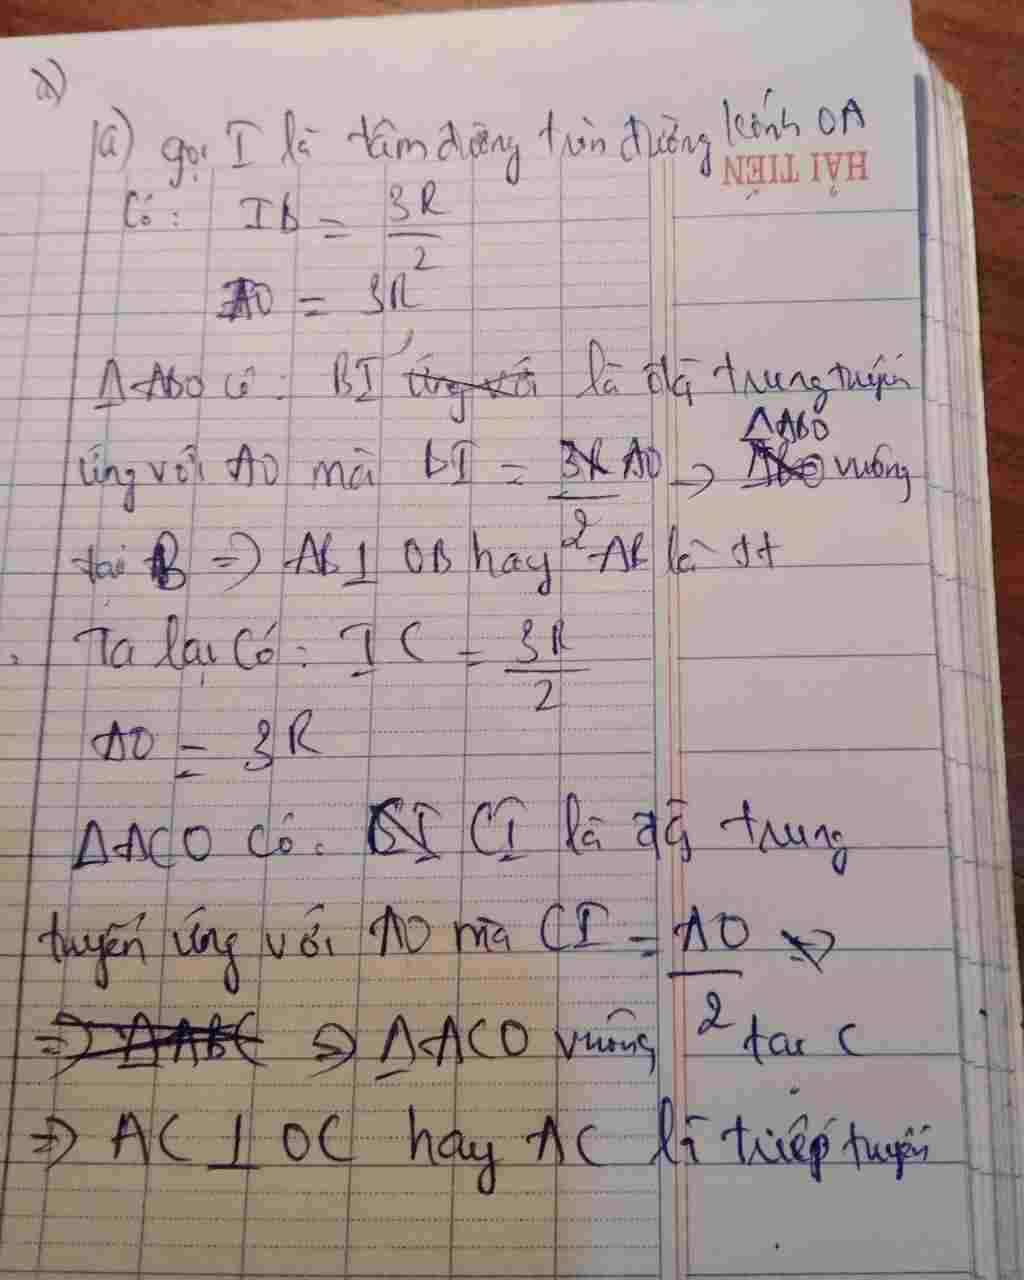 a)
a) gọi I là tâm đường tròn đường kính OA
HẢI TIẾN
Có: IB = 3R/2
AO = 3R
ΔABO có: BI là đg trung tuyến
ứng với AO mà BI = AO/2 => ΔABO vuông
tại B => AB ⊥ OB hay AB là tt
Ta lại có: IC = 3R/2
AO = 3R
ΔACO có: CI là đg trung
tuyến ứng với AO mà CI = AO/2 =>
=> ΔACO vuông tại C
=> AC ⊥ OC hay AC là tiếp tuyến